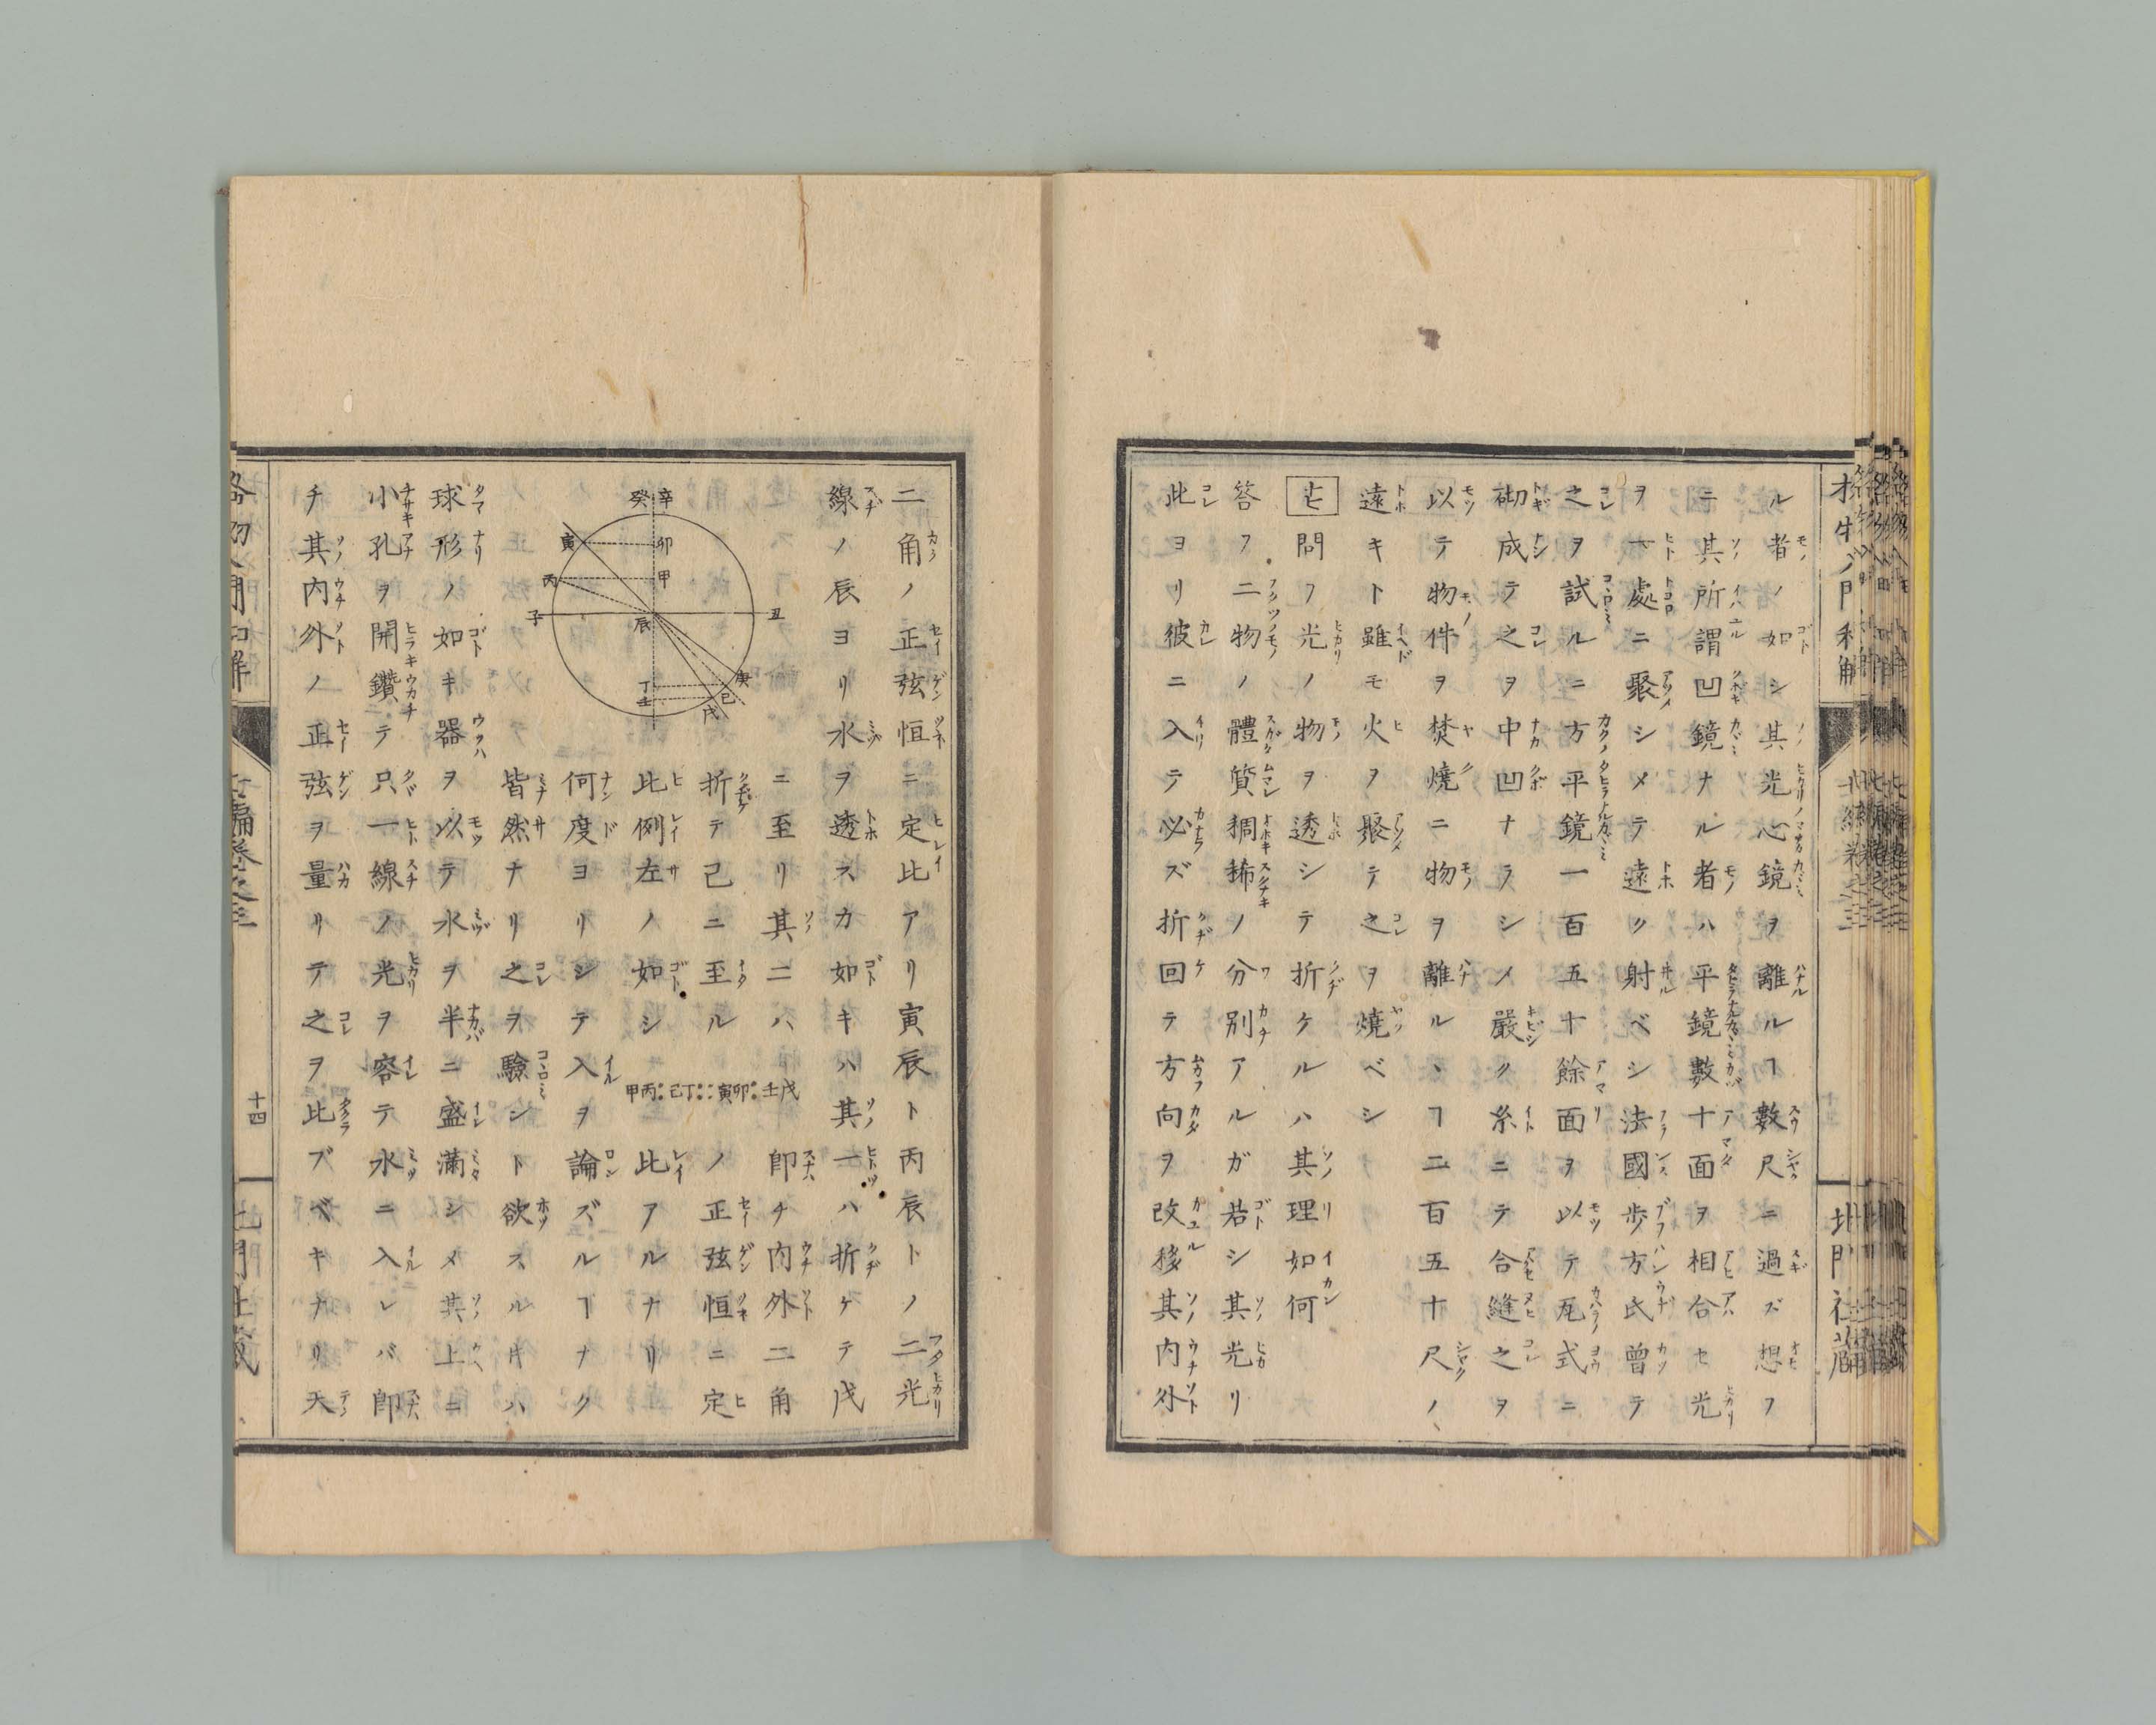 ル者ノ如シ其光心鏡ヲ離ルヿ數尺ニ過ズ想フ
ニ其所謂凹鏡ナル者ハ平鏡數十面ヲ相合セ光
ヲ一處ニ聚シメテ遠ク射ベシ法國歩方氏曾テ
之ヲ試ルニ方平鏡一百五十餘面ヲ以テ瓦式ニ
砌成テ之ヲ中凹ナラシメ嚴ク糸ニテ合縫之ヲ
以テ物件ヲ焚燒ニ物ヲ離ルヽヿ二百五十尺ノ
遠キト雖モ火ヲ聚テ之ヲ燒ベシ
問フ光ノ物ヲ透シテ折ケルハ其理如何
答フ二物ノ體質稠稀ノ分別アルガ若シ其光リ
此ヨリ彼ニ入テ必ズ折回テ方向ヲ改移其内外
二角ノ正弦恒ニ定比アリ寅辰ト丙辰トノ二光
線ノ辰ヨリ水ヲ透スカ如キハ其一ハ折ケテ戊
ニ至リ其二ハ即チ内外二角
折テ己ニ至ルノ正弦恒ニ定
比例左ノ如シ此アルナリ
甲丙:己丁::寅卯:壬戊
何度ヨリシテ入ヲ論ズルヿナク
皆然ナリ之ヲ驗シト欲スル片ハ
球形ノ如キ器ヲ以テ水ヲ半ニ盛滿シメ其上ニ
小孔ヲ開鑽テ只一線ノ光ヲ容テ水ニ入レバ即
チ其内外ノ正弦ヲ量リテ之ヲ比ブベキナリ天
癸 辛
寅 卯
丙 甲
子 辰 丑
丁 庚
壬 己
戊
十四